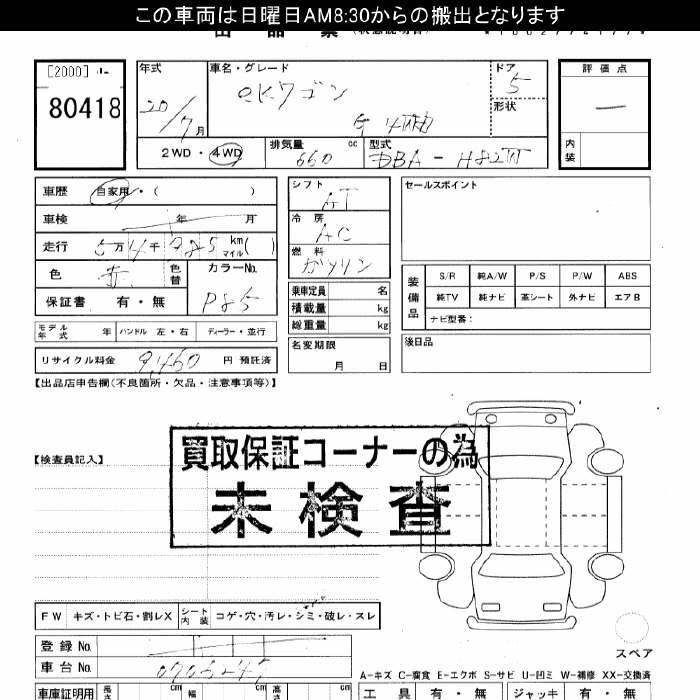 この車両は日曜日AM8:30からの搬出となります
[2000]
80418
年式
20/7月
車名・グレード
eKワゴン
G 4WD
ドア
5
形状
評価点
—
内装
2WD・4WD
排気量
660 cc
型式
DBA-H82W
車歴 自家用・( )
車検 年 月
走行 5万4千985 km マイル( )
色 赤 色替
カラーNo.
P85
保証書 有・無
モデル年式 年 ハンドル 左・右 ディーラー・並行
リサイクル料金 9,460 円 預託済
シフト
AT
冷房
AC
燃料
ガソリン
乗車定員 名
積載量 kg
総重量 kg
名変期限
月 日
セールスポイント
装備品
S/R 純A/W P/S P/W ABS
純TV 純ナビ 革シート 外ナビ エアB
ナビ型番:
後日品
【出品店申告欄(不良箇所・欠品・注意事項等)】
【検査員記入】
買取保証コーナーの為
未検査
FW キズ・トビ石・割レX シート内装 コゲ・穴・汚レ・シミ・破レ・スレ
スペア
登録No.
車台No.
A-キズ C-腐食 E-エクボ S-サビ U-凹ミ W-補修 XX-交換済
車庫証明用 長さ cm 幅 cm 高 cm
工具 有・無 ジャッキ 有・無